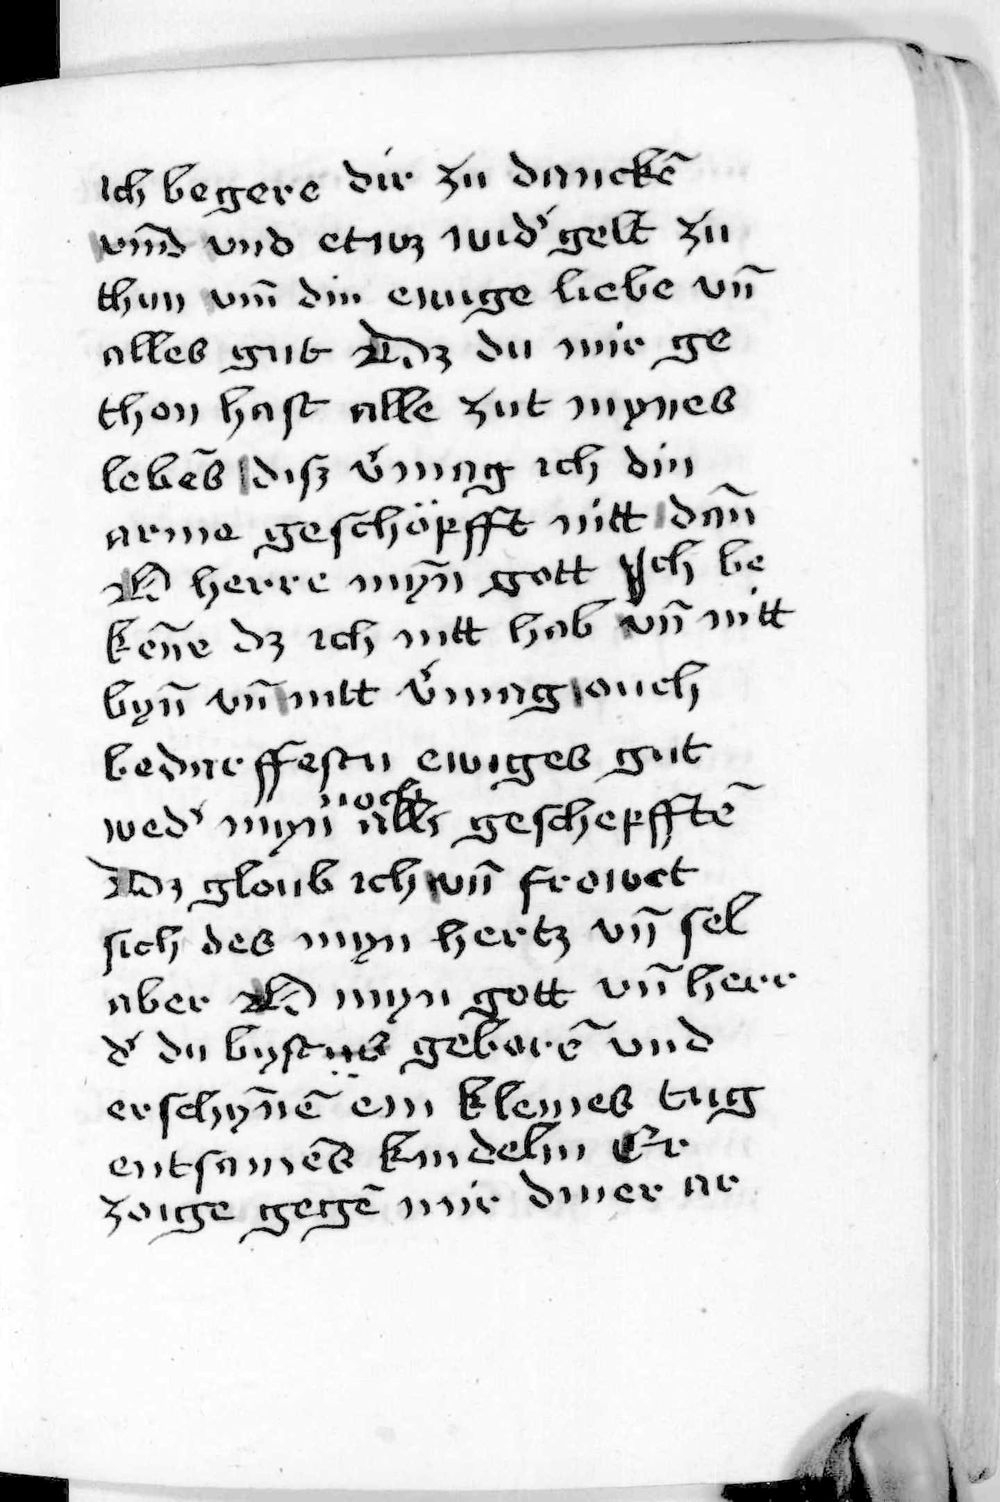 ich begere dir zu danckē
vm̄b vnd etwz widˀ gelt zu
thun vm̄ din ewige liebe vn̄
alles gut Dz du mir ge
thon hast alle zÿt mynes
lebēs disz v̓mag ich din
arme geschöpfft nitt dan̄
O herre myn̄ gott Ich be
ken̄e dz ich nitt hab vn̄ nitt
byn̄ vn̄ nitt v̓mag ouch
bedurffestu ewiges gut
wedˀ myn noch aller geschepfftē
Dz gloub ich vn̄ frowet
sich des myn hertz vn̄ sel
aber O myn gott vn̄ herr
dˀ du byst vns geborē vnd
erschyn̄ē ein kleines tug
entsamēs kindelin Er
zoige gegē mir diner ar